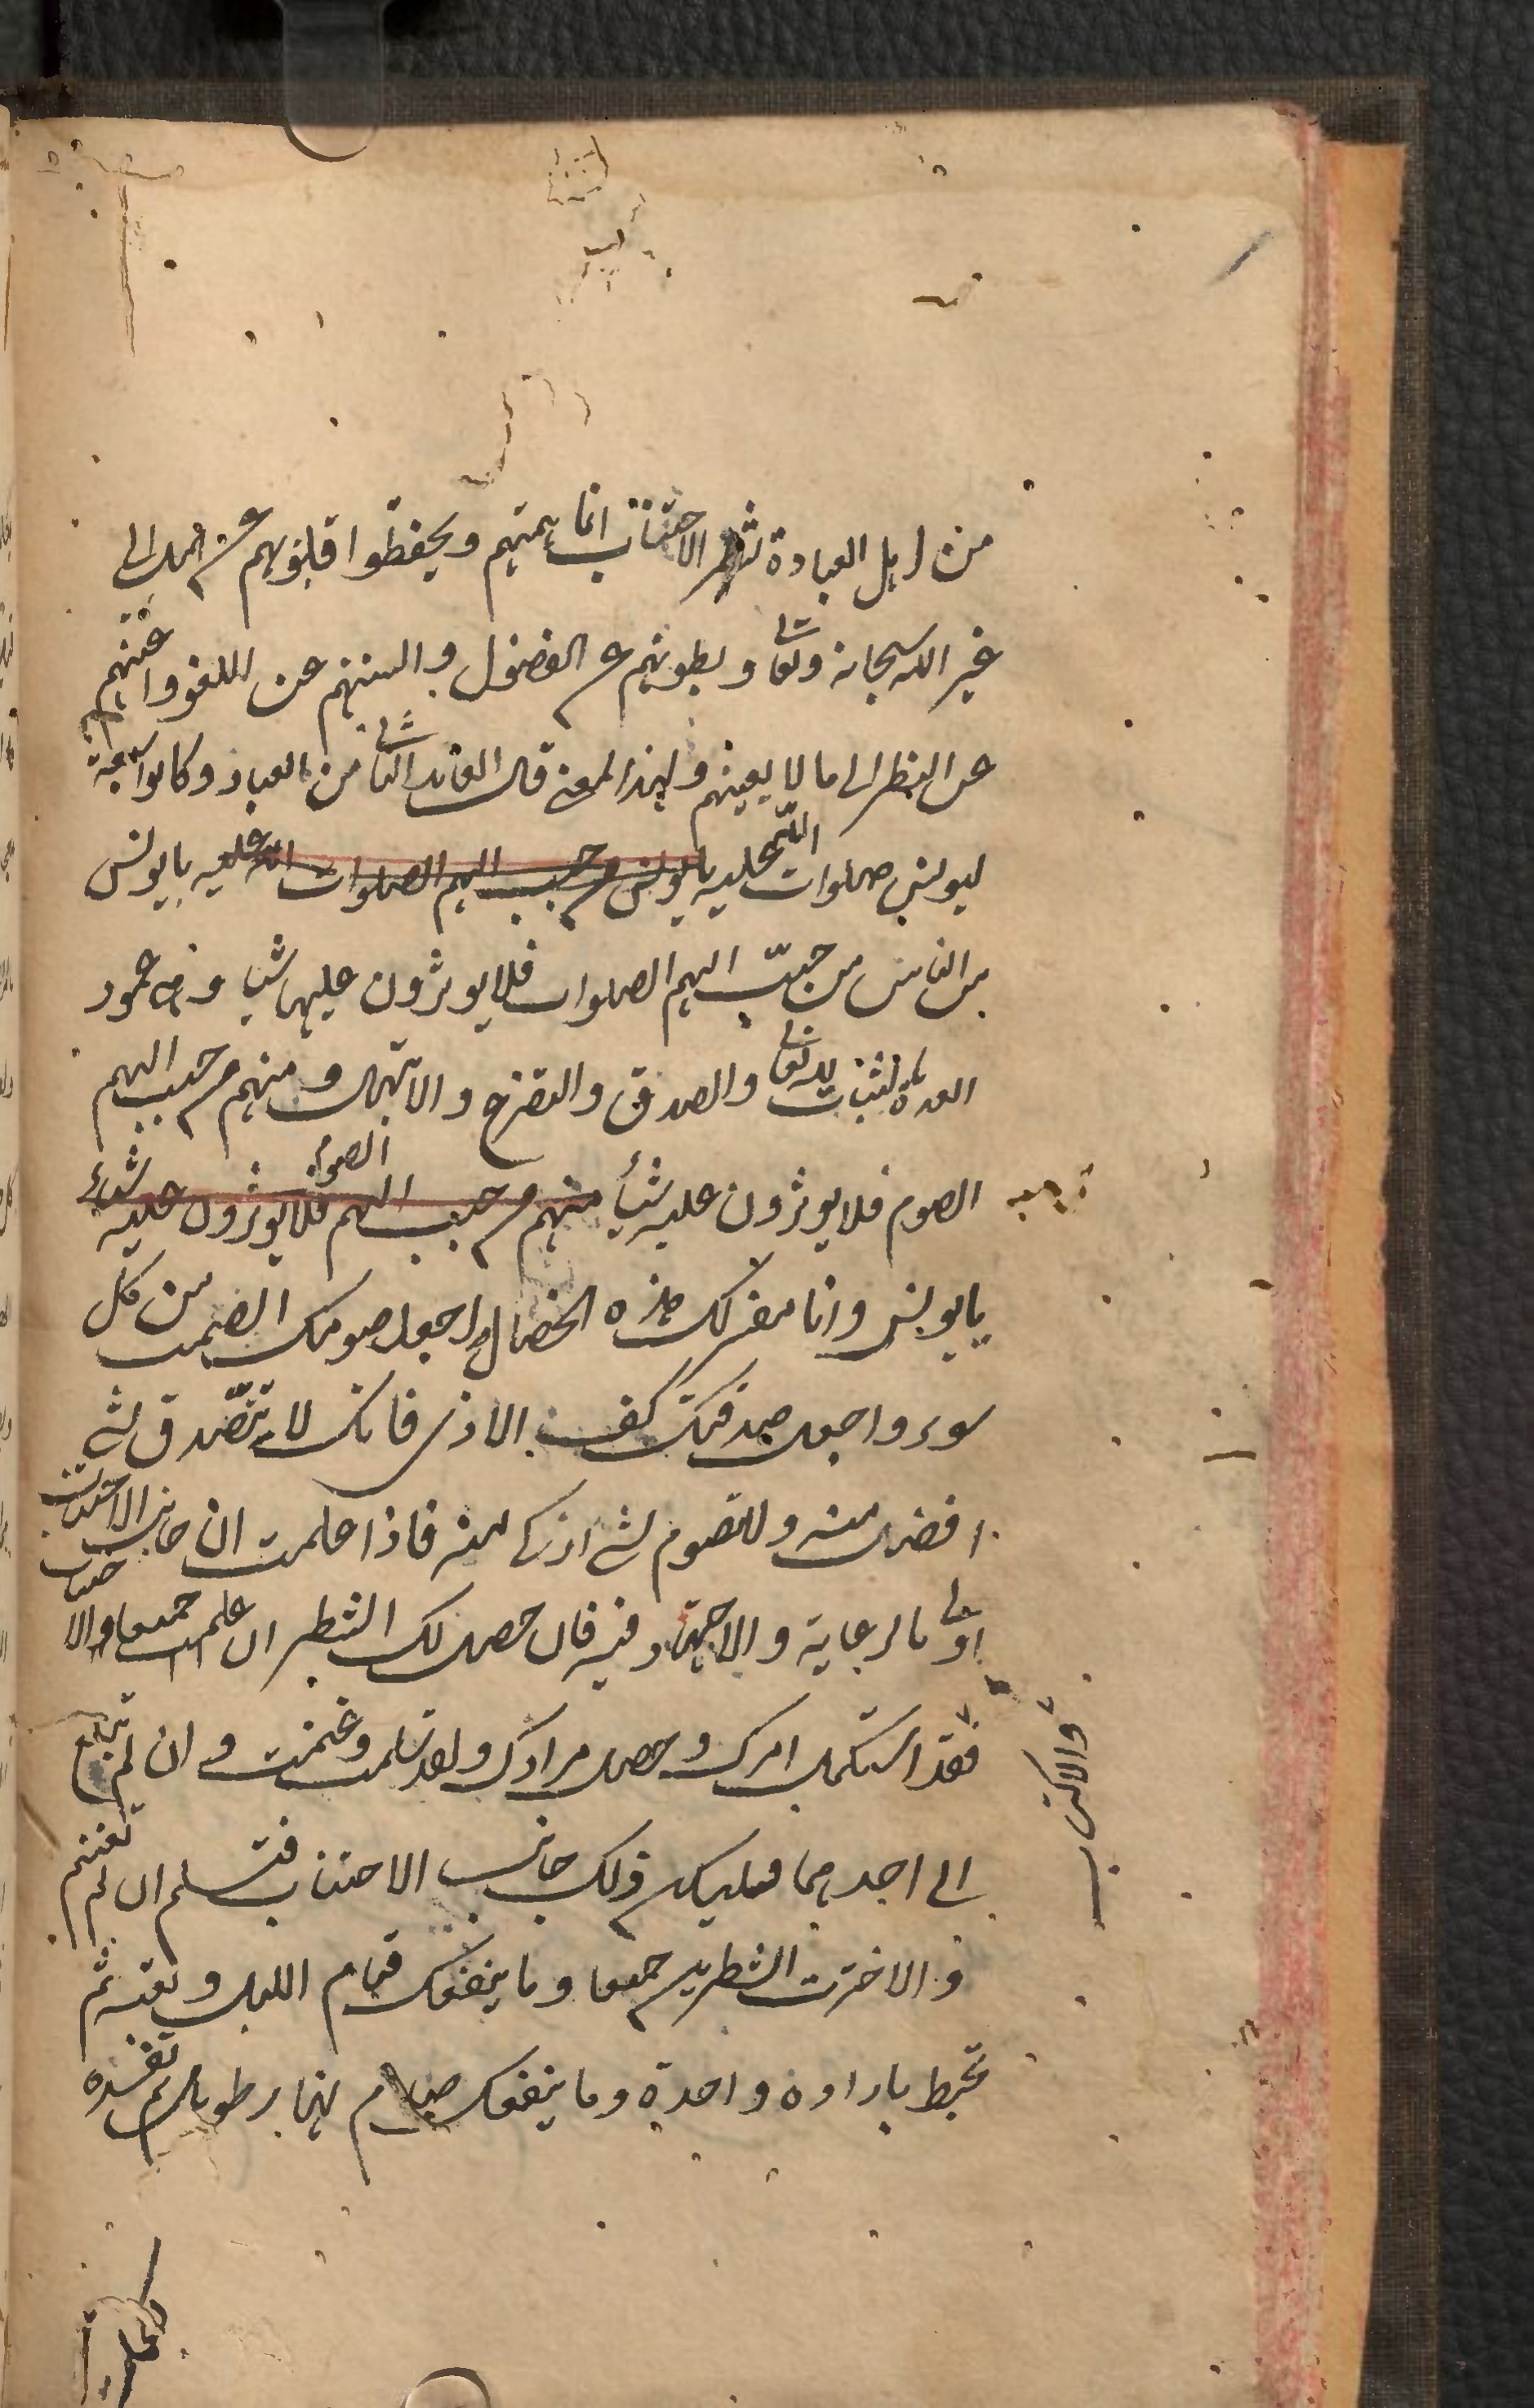 من اهل العبادة شطر الاجتناب انما همتهم ويحفظوا قلوبهم عن الميل الى
غير الله سبحانه وتعالى وبطونهم عن الفضول والسنتهم عن اللغو واعينهم
عن النظر الى ما لا يعنيهم ولهذا المعنى قال العابد الثاني من العباد وكانوا سبعة
ليونس صلوات الله عليه يا يونس من حبب اليهم الصلوات الله عليه يا يونس
من الناس من حبب اليهم الصلوات فلا يوثرون عليها شيا وهي عمود
العبادة لثبات لله تعالى والصدق والتضرع والابتهال ومنهم من حبب اليهم
الصوم فلا يوثرون عليه شيأ منهم من حبب اليهم الصوم فلا يوثرون عليه شيأ
يا يونس وانا مفسر لك هذه الخصال واجعل صومك الصمت من كل
سوء واجعل صدقتك كف الاذى فانك لا تتصدق بشي
افضل منه ولا تصوم بشي ازكى منه فاذا علمت ان جانب الاجتناب
اولى بالرعاية والاجتهاد فيه فان حصل لك الشطران علمت جميعا والاجتناب
والاكتساب
فقد استكمل امرك وحصل مرادك ولقد سلمت وغنمت وان لم تبلغ
الى احدهما فليكن ذلك جانب الاجتناب فتسلم ان لم تغنم
والا خسرت الشطرين جميعا وما ينفعك قيام الليل وتعبه ثم
تحبط بارادة واحدة وما ينفعك صيام نهار طويل ثم تفسده